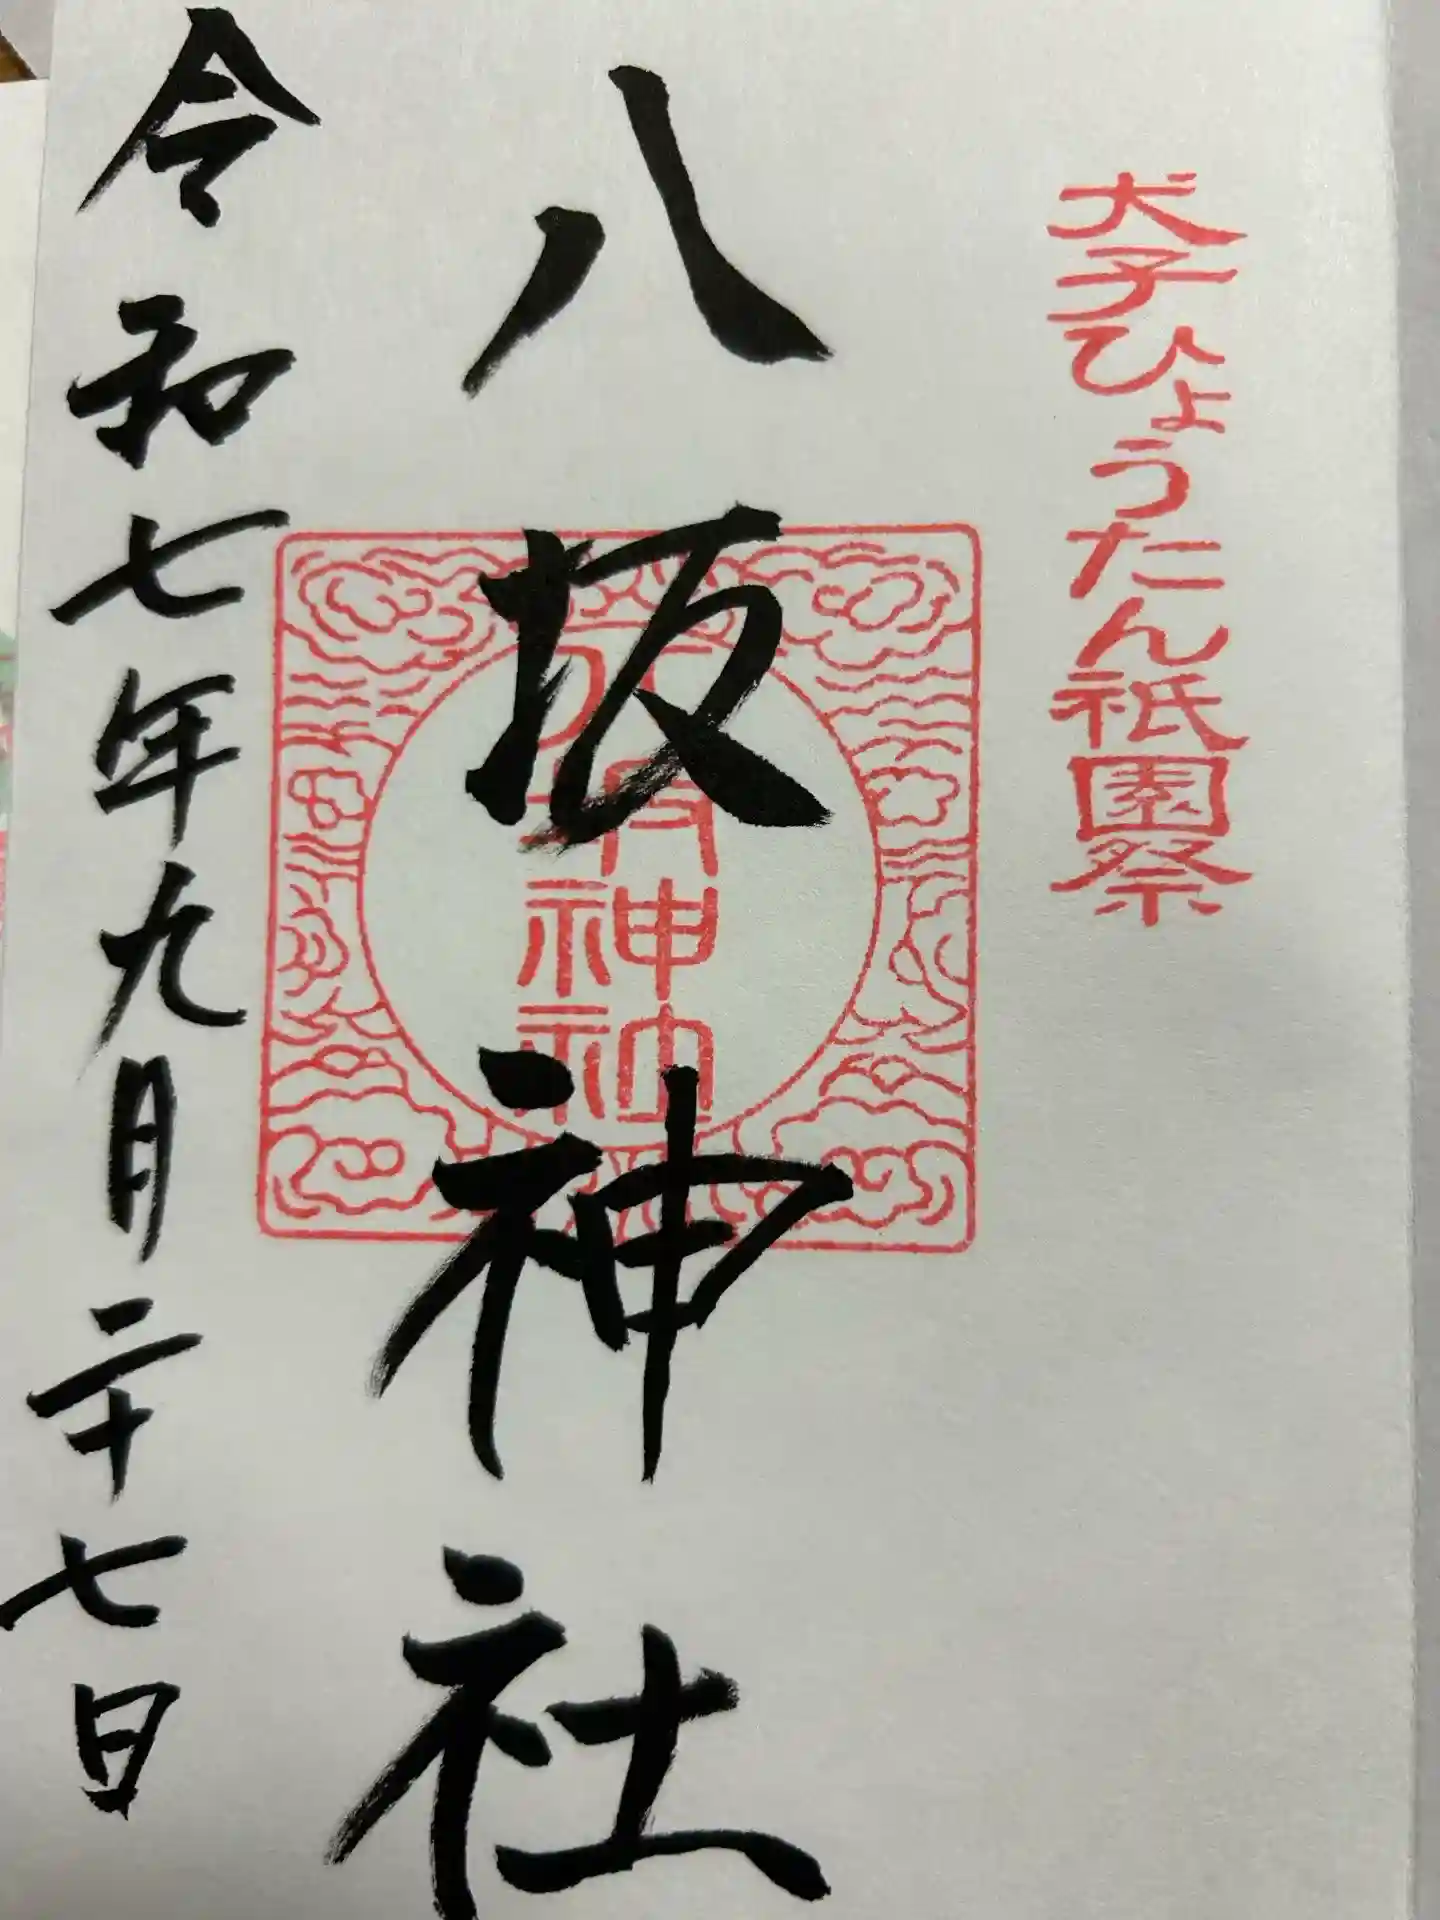 犬子ひょうたん祇園祭
八坂神社
八坂神社
令和七年九月二十七日